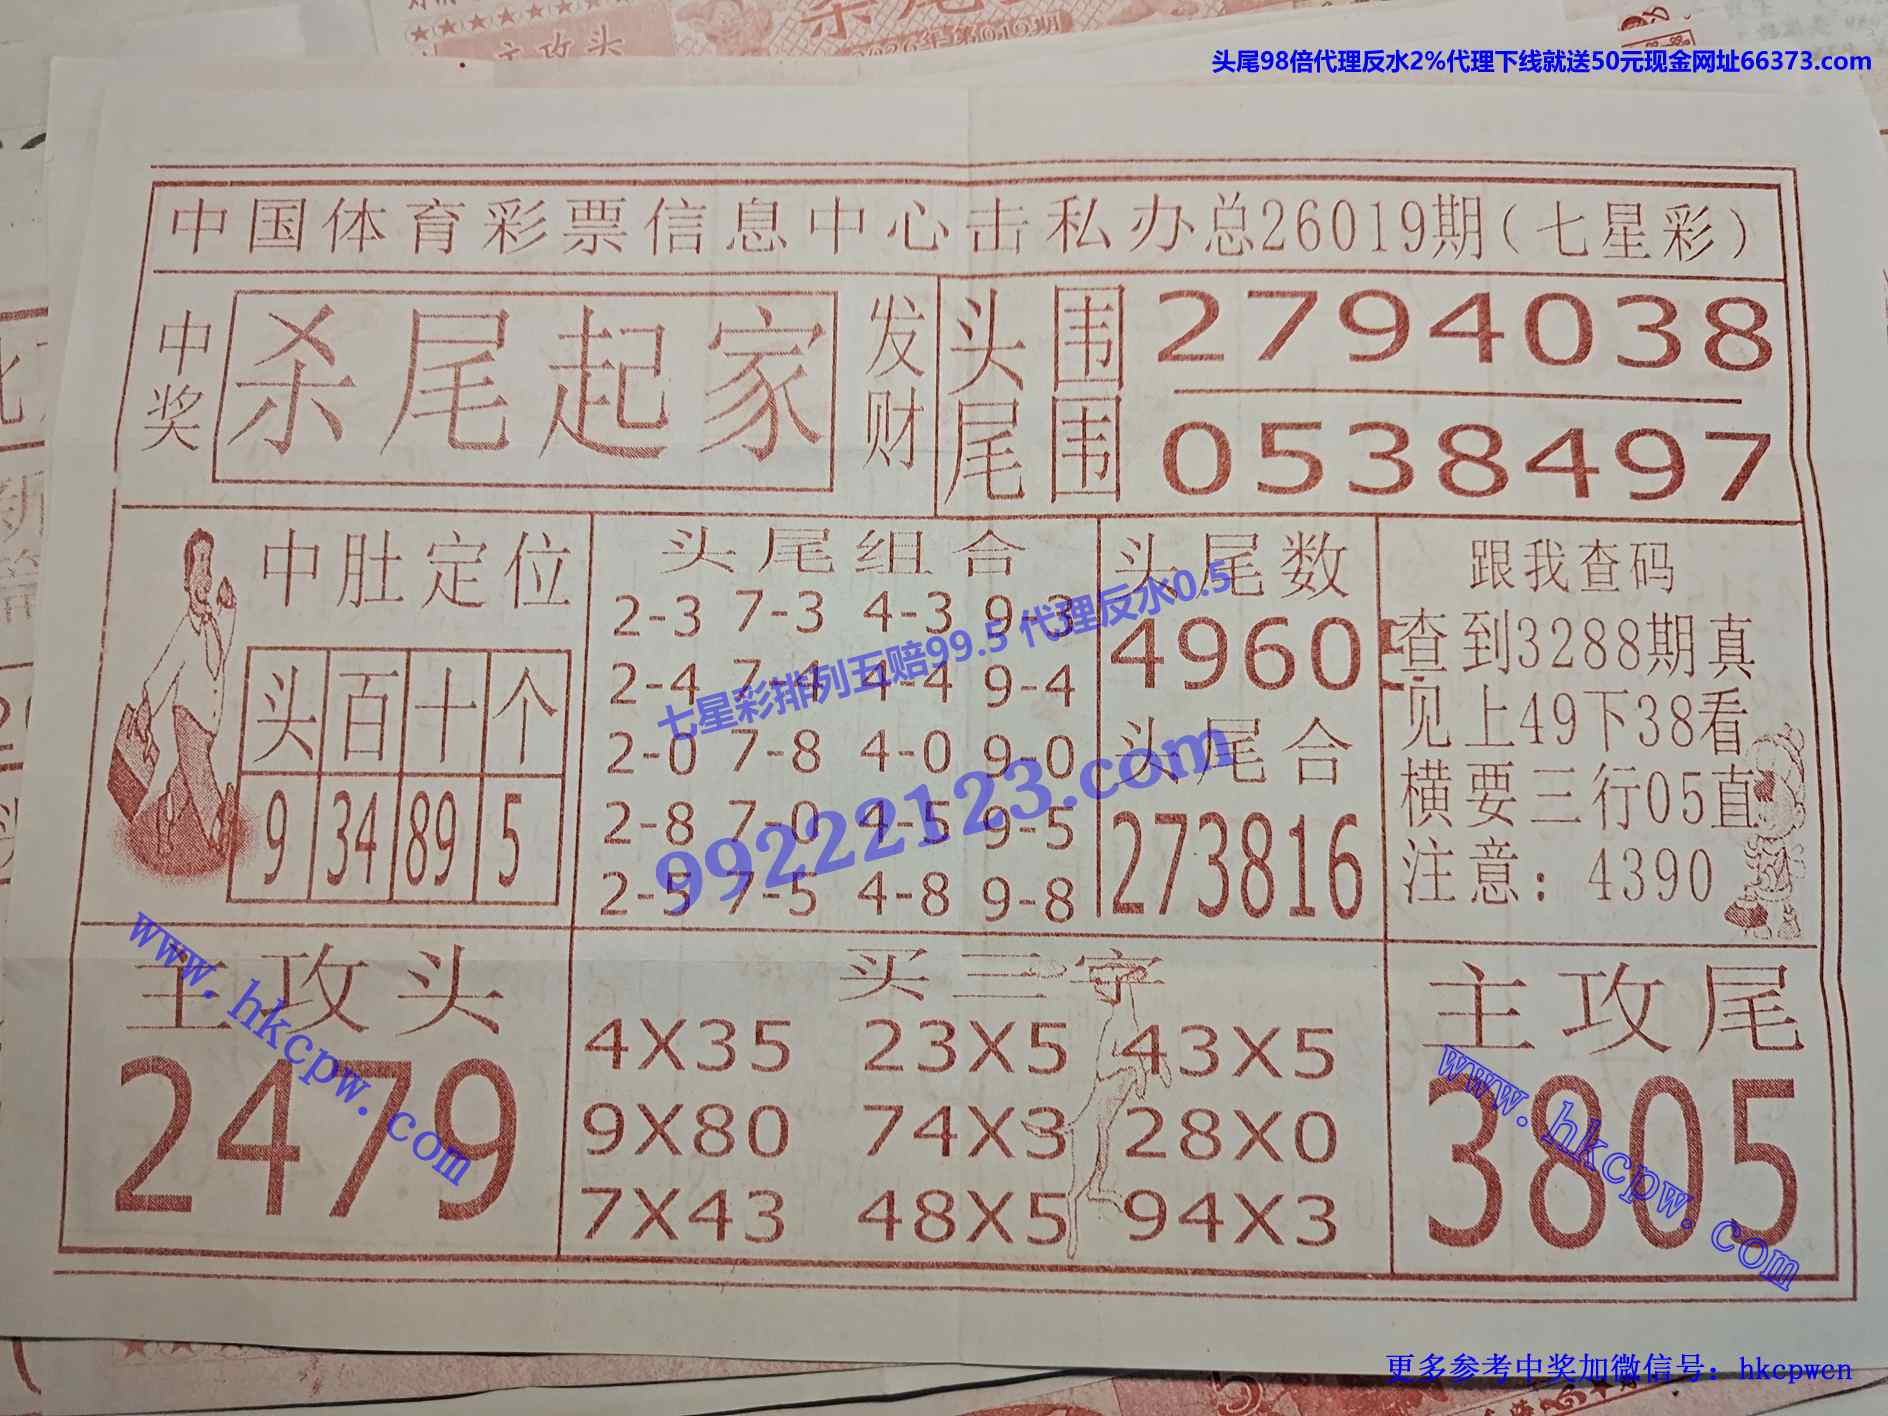 主攻头
2026年第019期
头尾98倍代理反水2%代理下线就送50元现金网址66373.com
中国体育彩票信息中心击私办总26019期(七星彩)
中奖
杀尾起家
发财
头围 2794038
尾围 0538497
中肚定位
头 百 十 个
9 34 89 5
头尾组合
2-3 7-3 4-3 9-3
2-4 7-4 4-4 9-4
2-0 7-8 4-0 9-0
2-8 7-0 4-5 9-5
2-5 7-5 4-8 9-8
头尾数
49605
头尾合
273816
跟我查码
查到3288期真
见上49下38看
横要三行05直
注意：4390
七星彩排列五赔99.5 代理反水0.5
99222123.com
主攻头
2479
www.hkcpw.com
买三字
4X35 23X5 43X5
9X80 74X3 28X0
7X43 48X5 94X3
主攻尾
3805
www.hkcpw.com
更多参考中奖加微信号：hkcpwcn